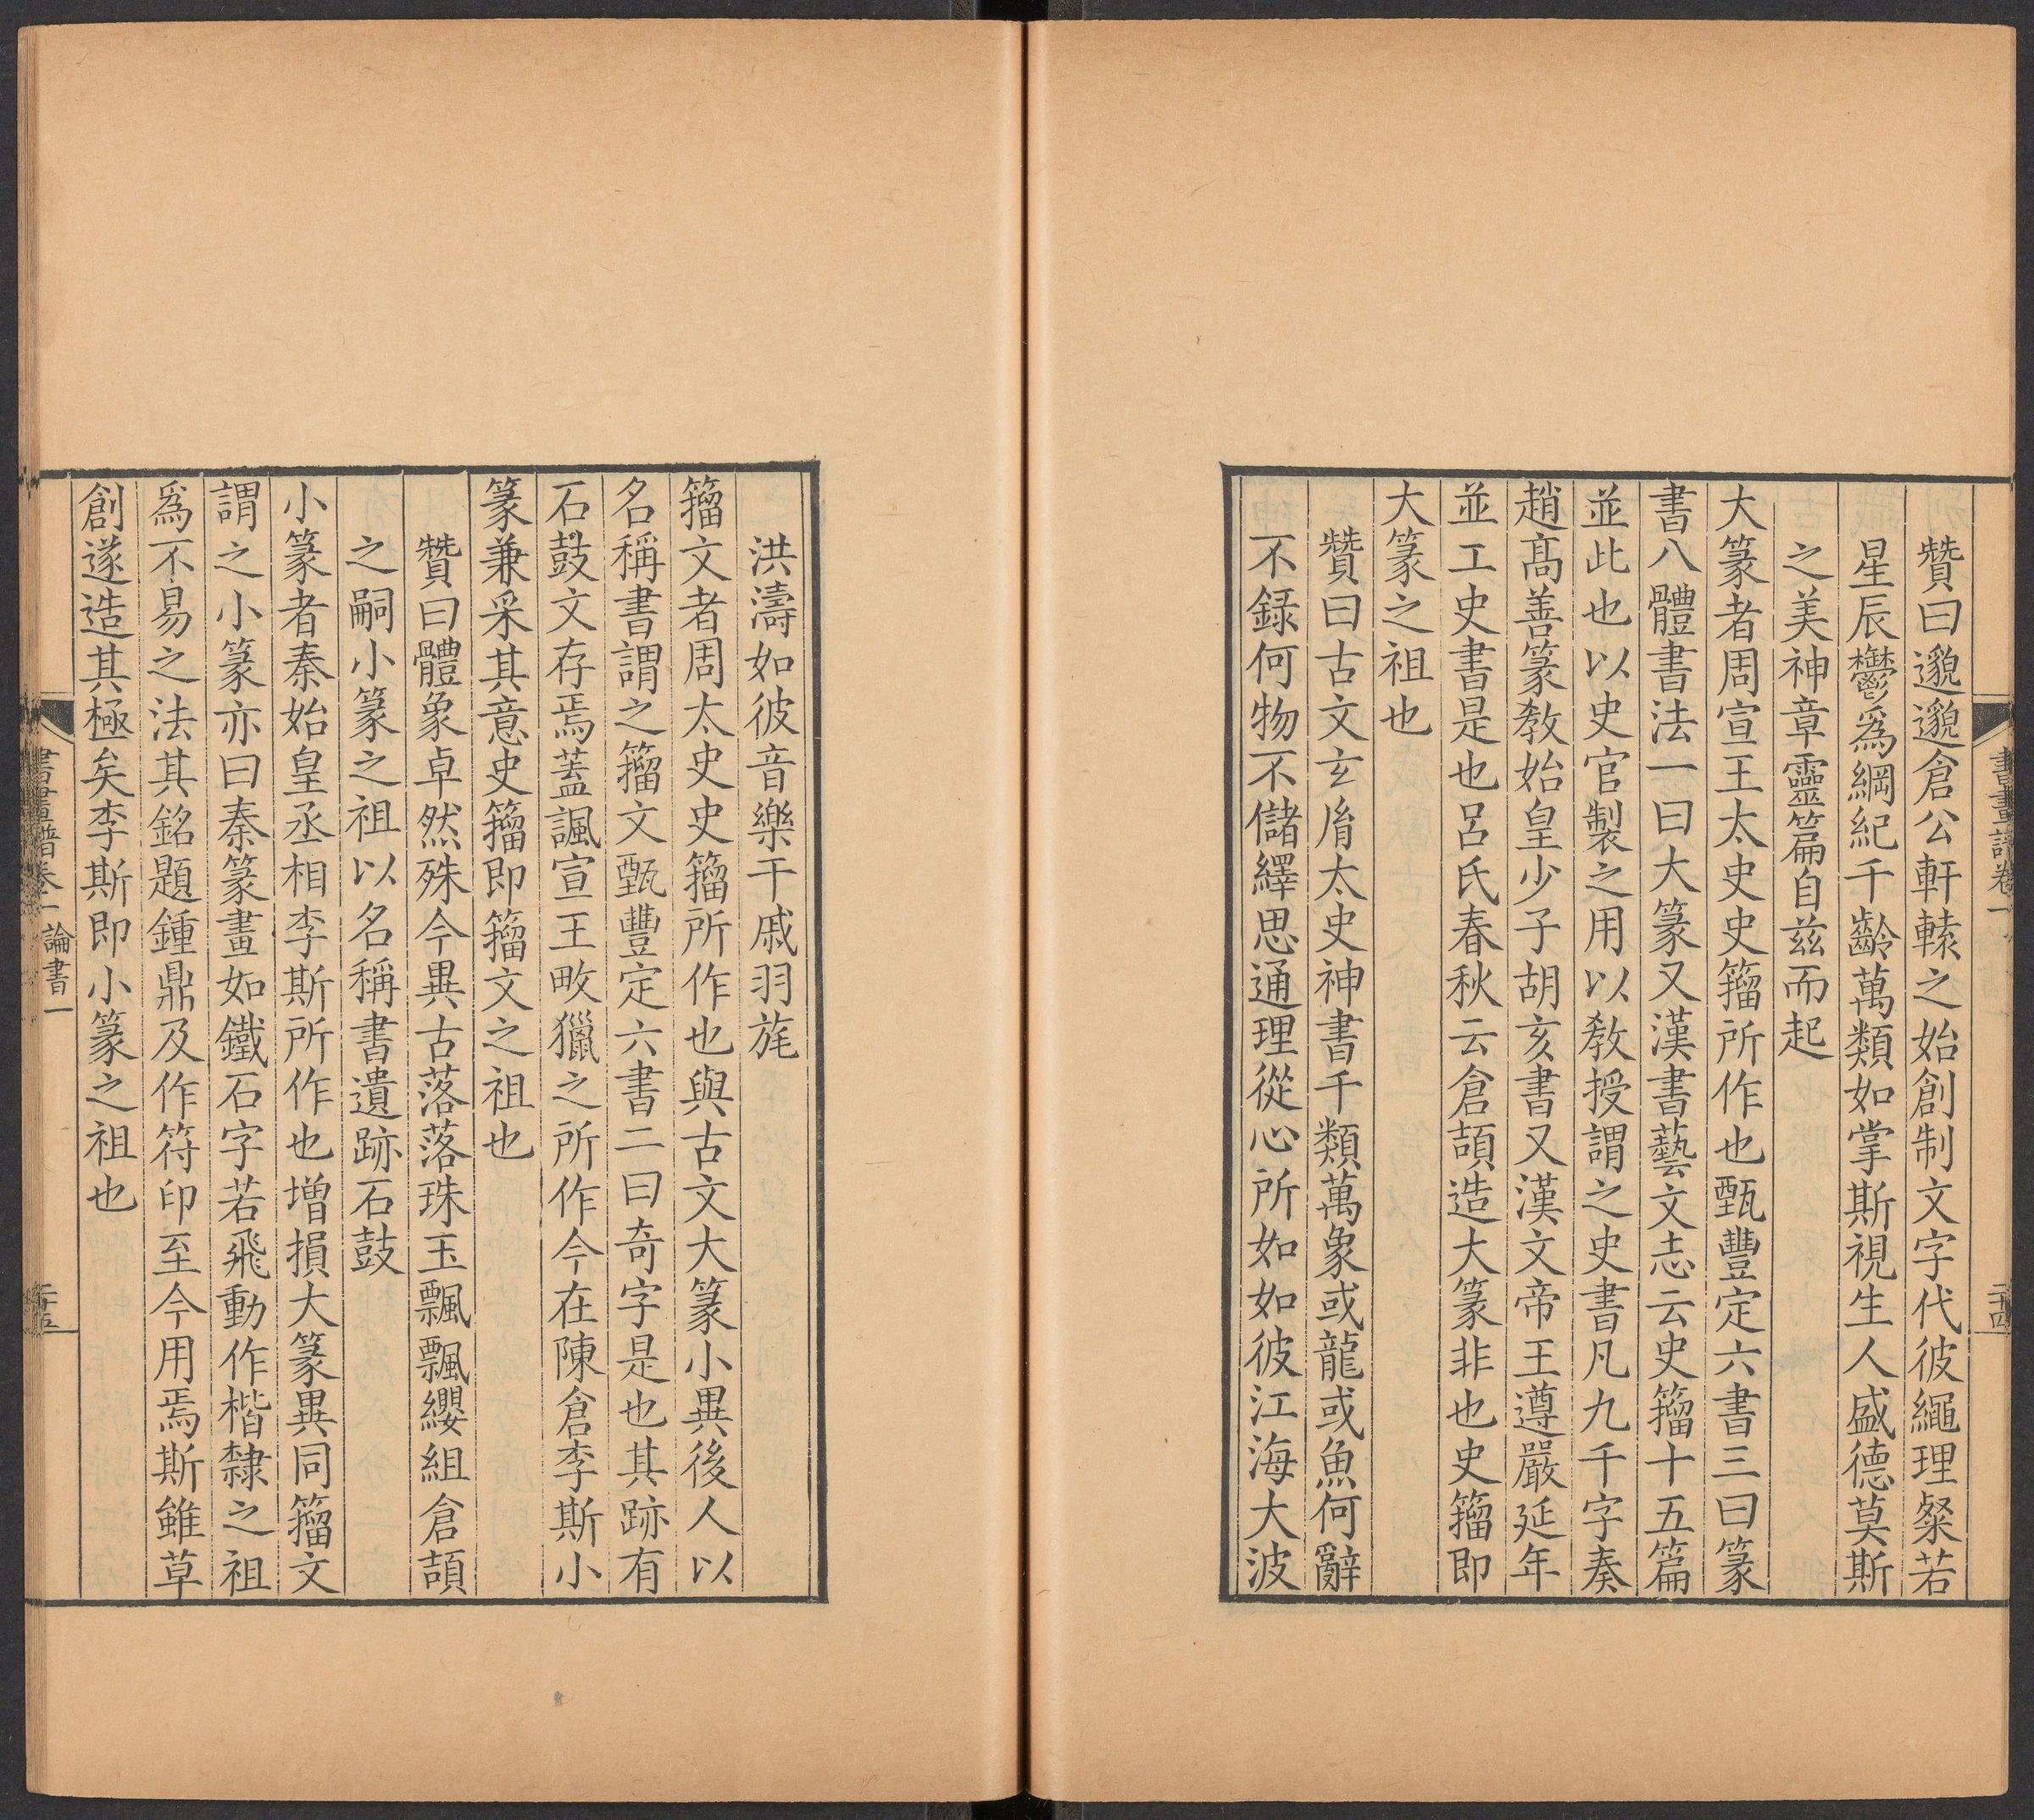 書畫譜卷一
二十四
贊曰邈邈倉公軒轅之始創制文字代彼繩理粲若
星辰鬱爲綱紀千齡萬類如掌斯視生人盛德莫斯
之美神章靈篇自兹而起
大篆者周宣王太史史籀所作也甄豐定六書三曰篆
書八體書法一曰大篆又漢書藝文志云史籀十五篇
並此也以史官製之用以敎授謂之史書凡九千字奏
趙髙善篆敎始皇少子胡亥書又漢文帝王遵嚴延年
並工史書是也呂氏春秋云倉頡造大篆非也史籀即
大篆之祖也
贊曰古文玄胤太史神書千類萬象或龍或魚何辭
不録何物不儲繹思通理從心所如如彼江海大波
洪濤如彼音樂干戚羽旄
籀文者周太史史籀所作也與古文大篆小異後人以
名稱書謂之籀文甄豐定六書二曰奇字是也其跡有
石鼓文存焉葢諷宣王畋獵之所作今在陳倉李斯小
篆兼采其意史籀即籀文之祖也
贊曰體象卓然殊今異古落落珠玉飄飄纓組倉頡
之嗣小篆之祖以名稱書遺跡石鼓
小篆者秦始皇丞相李斯所作也增損大篆異同籀文
謂之小篆亦曰秦篆畫如鐵石字若飛動作楷隸之祖
爲不易之法其銘題鍾鼎及作符印至今用焉斯雖草
創遂造其極矣李斯即小篆之祖也
書畫譜卷一 論書一
二十五